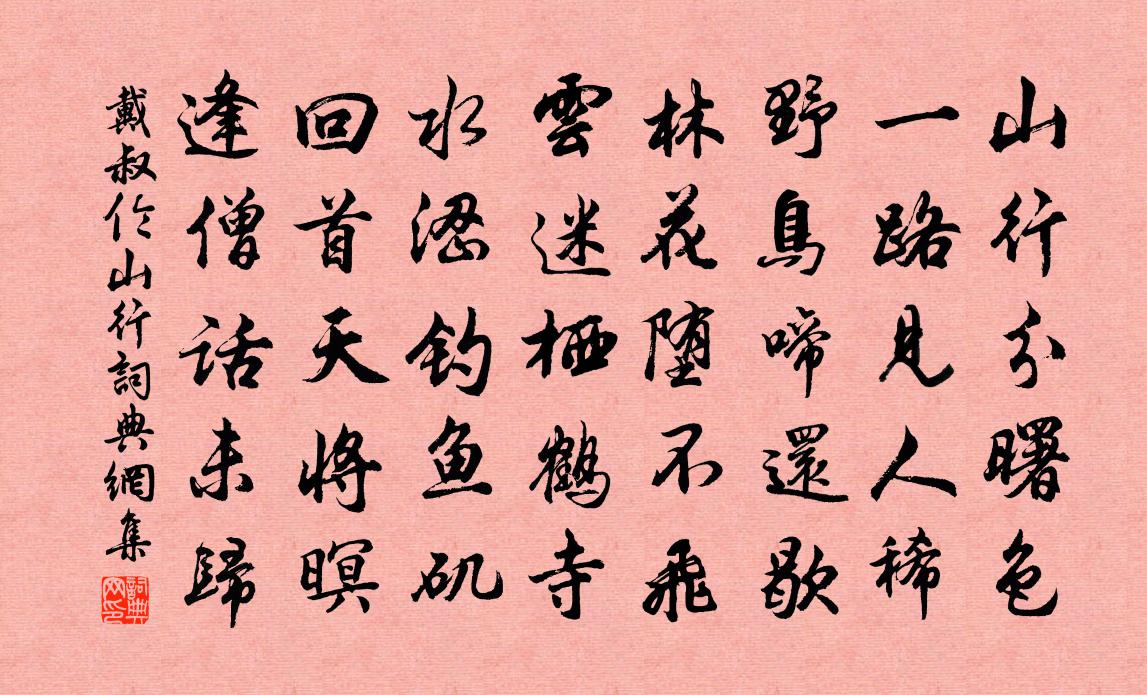 山行分曙色
一路見人稀
野鳥啼還歇
林花堕不飛
雲迷栖鶴寺
水澀钓鱼矶
回首天将暝
逢僧話未歸
戴叔伦山行詞典網集
詞典网印